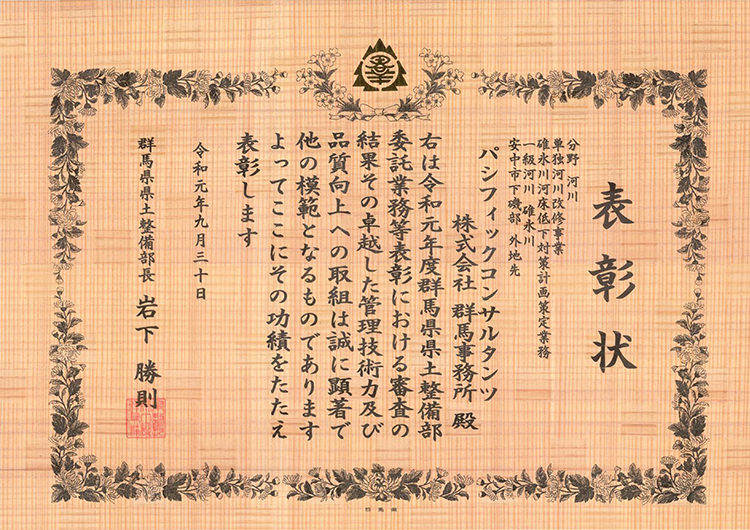 表彰状
分野 河川
単独河川改修事業
碓氷川河床低下対策計画策定業務
一級河川 碓氷川
安中市下磯部 外地先
パシフィックコンサルタンツ
株式会社 群馬事務所 殿
右は令和元年度群馬県県土整備部
委託業務等表彰における審査の
結果その卓越した管理技術力及び
品質向上への取組は誠に顕著で
他の模範となるものであります
よってここにその功績をたたえ
表彰します
令和元年九月三十日
群馬県県土整備部長 岩下 勝則
群馬県